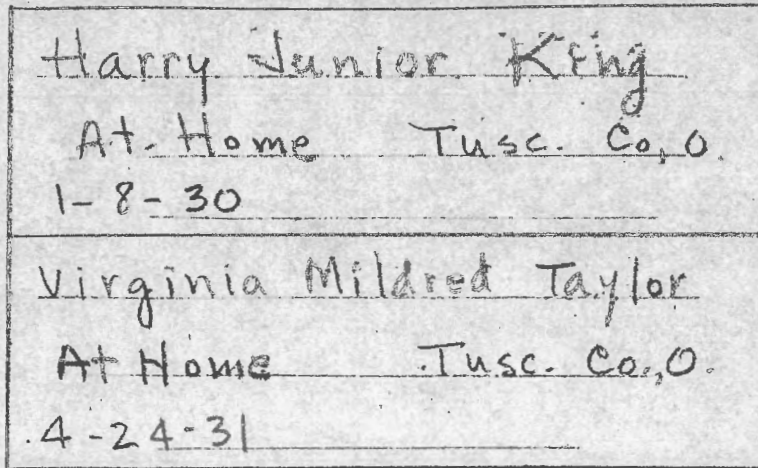 Harry Junior King
At Home Tusc. Co, O.
1-8-30
Virginia Mildred Taylor
At Home Tusc. Co., O.
4-24-31